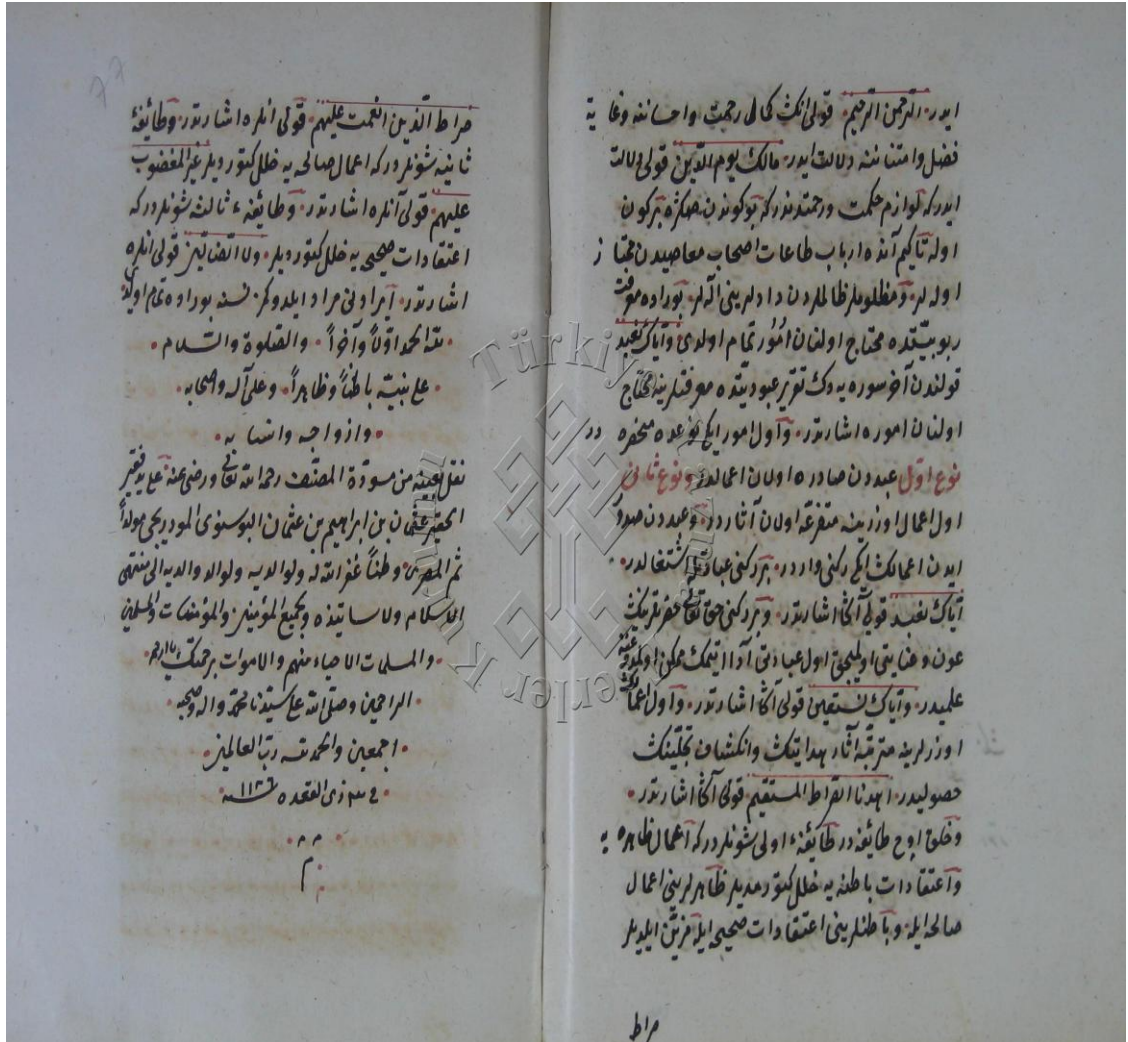 ايدر الرحمن الرحيم قولى انك كمال رحمت واحساننه وغايت
فضل وامتناننه دلالت ايدر مالك يوم الدين قولى دلالت
ايدركه لوازم حكمت ورحمتدندركه بوكوندن صكره بركون
اوله تاكيم آنده ارباب طاعات اصحاب معاصيدن ممتاز
اوله لر ومظلوملر ظالملردن دادلرينى آله لر بوراده معرفت
ربوبيتده محتاج اولنان امور تمام اولدى واياك نعبد
قولندن آخر سوره يه دك تقرير عبوديتده معرفتلرينه محتاج
اولنان اموره اشارتدر واول امور ايكى نوعده منحصره در
نوع اول عبددن صادره اولان اعمالدر ونوع ثانى
اول اعمال اوزرينه متفرعه اولان آثاردر وعبددن صدور
ايدن اعمالك ايكى ركنى واردر بر ركنى عبادتله اشتغالدر
اياك نعبد قولى آكا اشارتدر وبر ركنى حق تعالى حضرتلرينك
عون وعنايتى اولميجق اول عبادتى آدا ايتمك ممكن اولمدوغنه
علميدر واياك نستعين قولى آكا اشارتدر واول اعمالك
اوزرلرينه مترتبه آثار هدايتك وانكشاف تجلينك
حصوليدر اهدنا الصراط المستقيم قولى آكا اشارتدر
وخلق اوج طائفه در طائفهء اولى شونلردركه اعمال ظاهره يه
واعتقادات باطنه يه خلل كتورمديلر ظاهرلرينى اعمال
صالحه ايله وباطنلرينى اعتقادات صحيحه ايله مزين ايلديلر
صراط
77
صراط الذين انعمت عليهم قولى انلره اشارتدر وطائفهٔ
ثانيه شونلردركه اعمال صالحه يه خلل كتورديلر غير المغضوب
عليهم قولى آنلره اشارتدر وطائفهء ثالثه شونلردركه
اعتقادات صحيحه يه خلل كتورديلر ولا الضالين قولى انلره
اشارتدر ايراونى مراد ايلدوكمز نسنه بوراده تمام اولدى
لله الحمد اولاً وآخراً والصلوة والسلام
على نبيه باطناً وظاهراً وعلى آله واصحابه
وازواجه وانسابه
نقل بعينه من مسودة المصنف رحمه الله تعالى ورضى عنه على يد فقير
الحقير عثمان بن ابراهيم بن عثمان البوسنوى المودريجى مولداً
ثم المصرى وطناً غفر الله له ولوالديه ولوالد والديه الى منتهى
الاسلام ولاساتيذه ولجميع المؤمنين والمؤمنات والمسلمين
والمسلمات الاحياء منهم والاموات برحمتك يا ارحم
الراحمين وصلى الله على سيدنا محمد واله وصحبه
اجمعين والحمد لله رب العالمين
فى ذى القعده سنه
م
Türkiye Yazma Eserler Kurumu